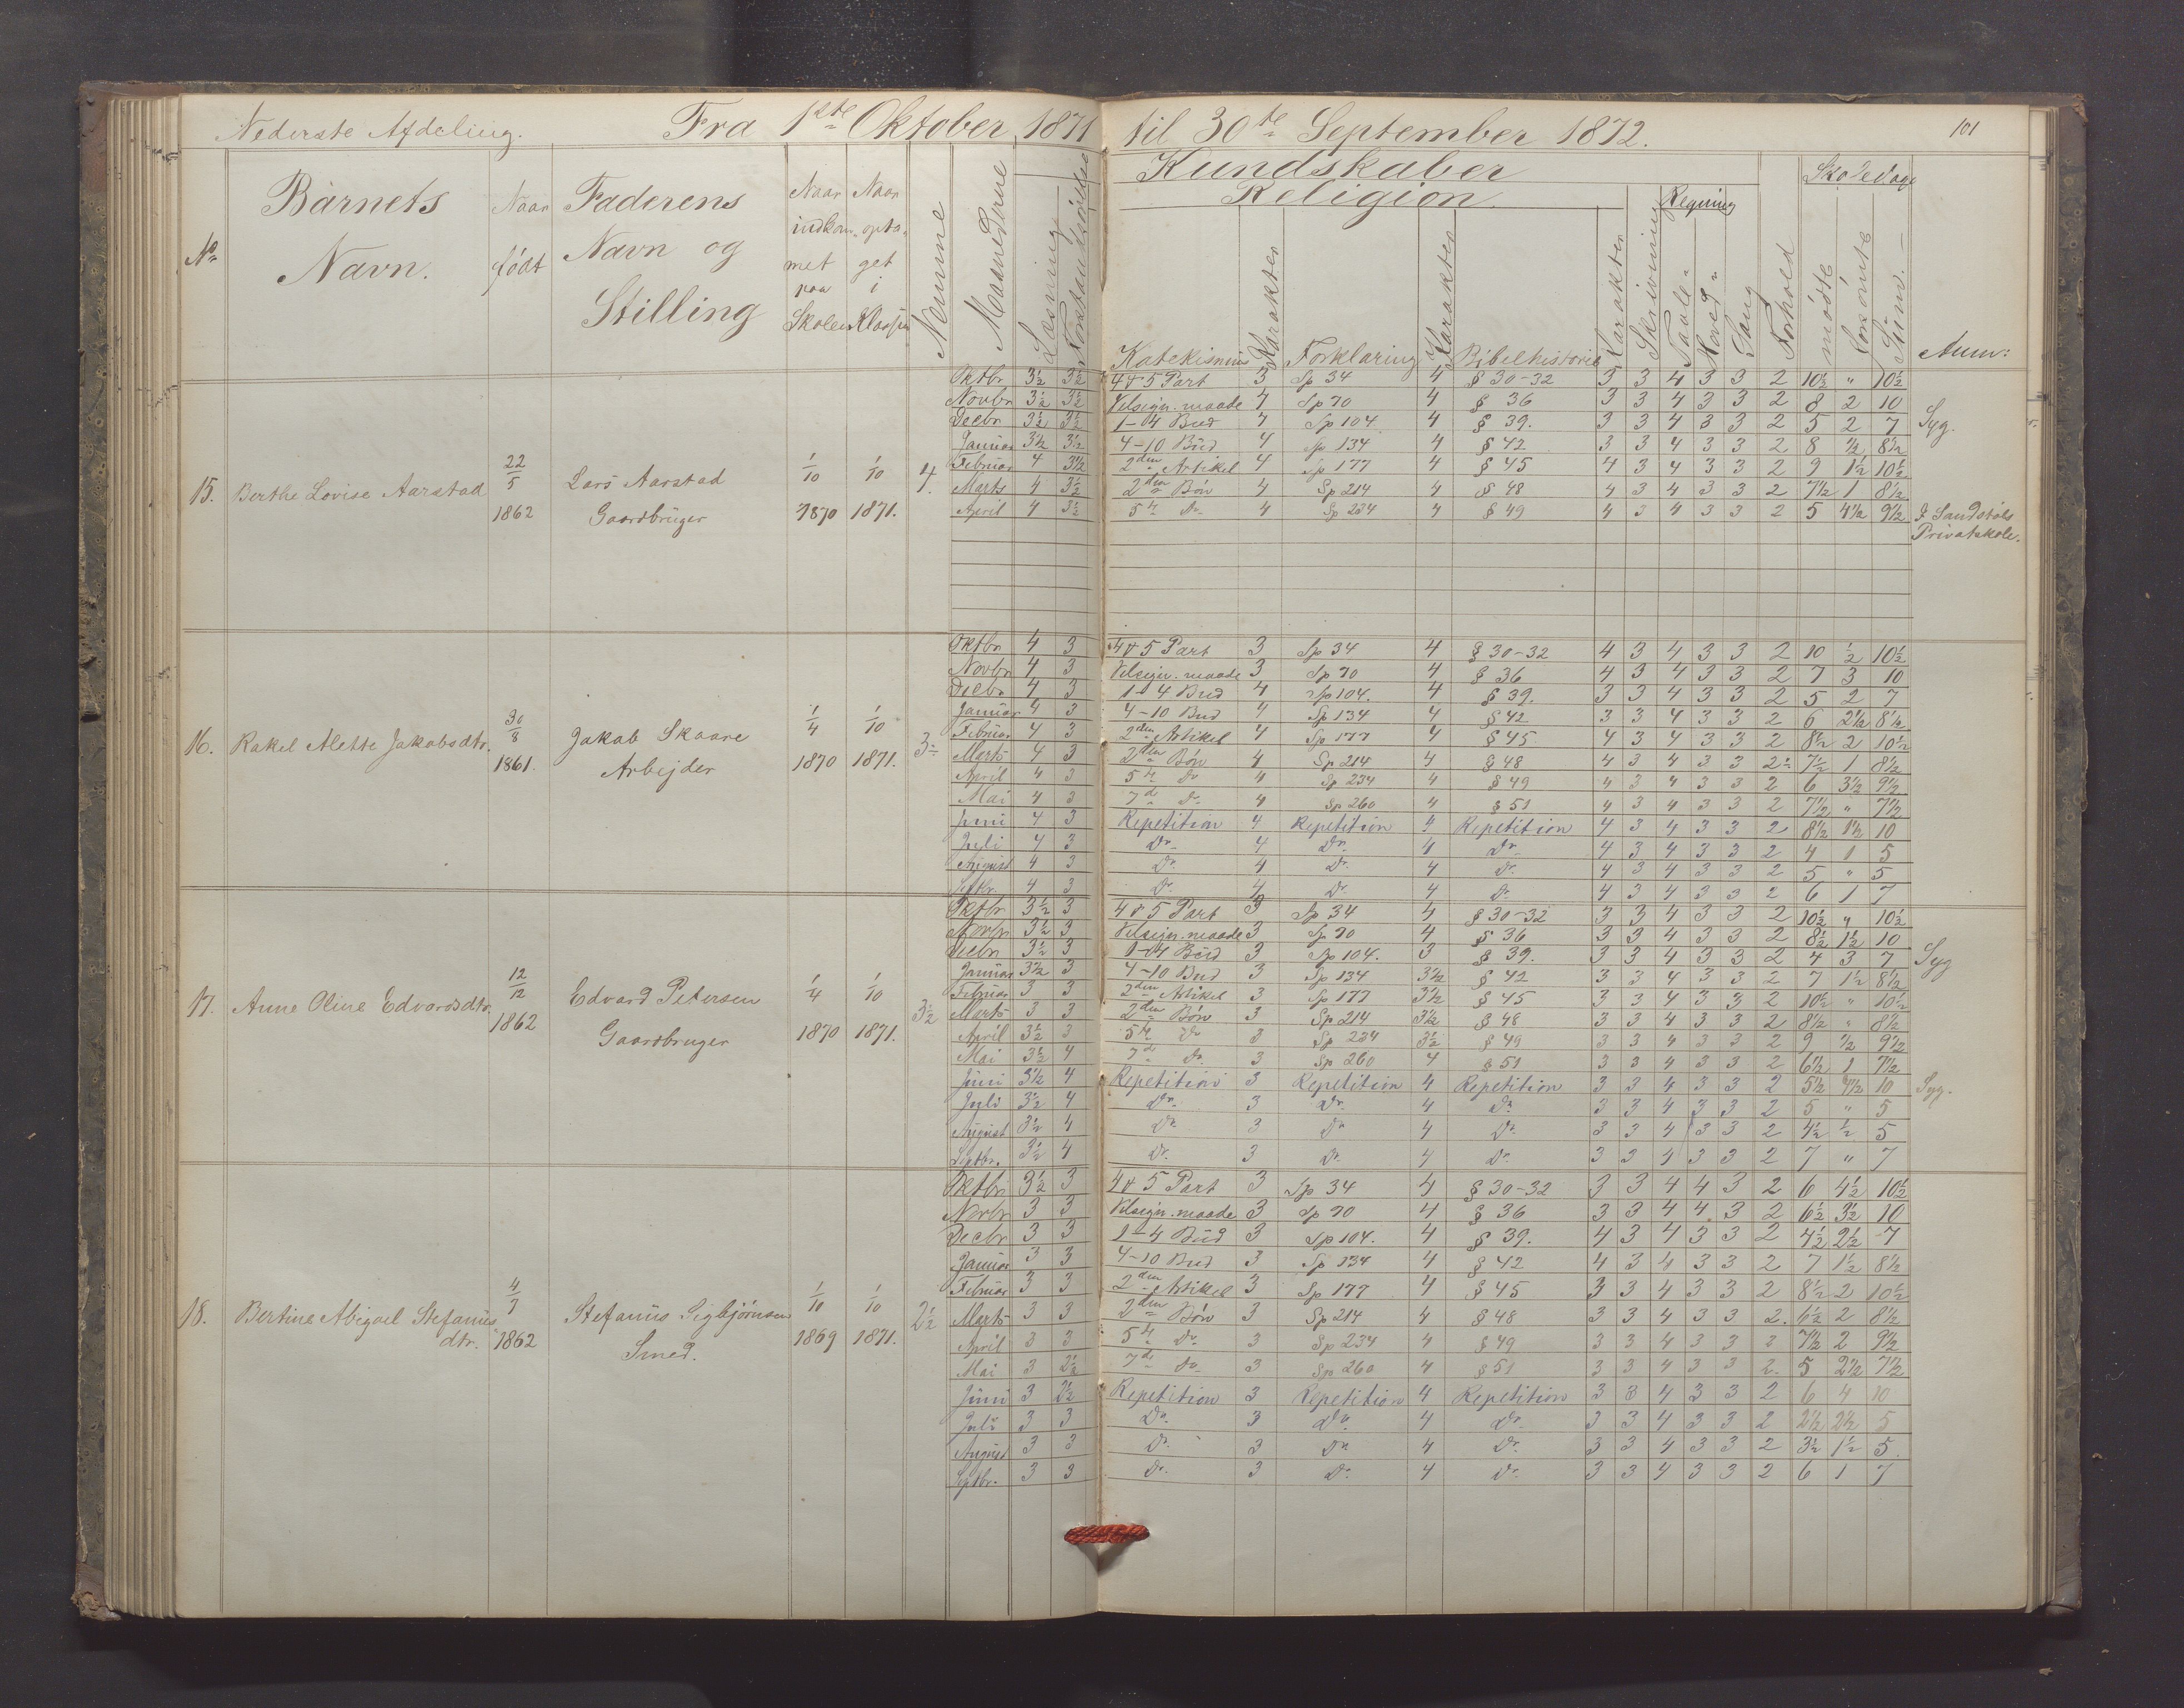 Nederste Afdeling. Fra 1ste Oktober 1871 til 30te September 1872. 101
Kundskaber Skoledage
Religion. Regning
No Barnets Navn. Naar født Faderens Navn og Stilling Naar indkommet paa Skolen Naar optaget i Klassen Nummer Maanederne Læsning Forstandsøvelse Katekismus Karakter Forklaring Karakter Bibelhistorie Karakter Skrivning Tavle- Hoved- Sang Forhold mødte forsømte Sum. Anm:
15. Berthe Lovise Aarstad 22/5 1862 Lars Aarstad Gaardbruger 1/10 1870 1/10 1871. 4.
Oktbr. 3½ 3½ 4 & 5 Part 3 Sp 34 4 § 30-32 3 3 4 3 3 2 10½ " 10½
Novbr 3½ 3½ Velsign. maade 4 Sp 70 4 § 36 3 3 4 3 3 2 8 2 10
Decbr 3½ 3½ 1-4 Bud 4 Sp 104 4 § 39. 3 3 4 3 3 2 5 2 7 Syg.
Januar 3½ 3½ 4-10 Bud 4 Sp 134 4 § 42 3 3 4 3 3 2 8 ½ 8½
Februar 4 3½ 2den Artikel 4 Sp 177 4 § 45 4 3 4 3 3 2 9 1½ 10½
Marts 4 3½ 2den Bøn 4 Sp 214 4 § 48 4 3 4 3 3 2 7½ 1 8½
April 4 3½ 5te Do 4 Sp 234 4 § 49 4 3 4 3 3 2 5 4½ 9½ I Sandstøls
Privatskole.
16. Rakel Alette Jakobsdtr. 30/8 1861. Jakob Skaare Arbejder 1/4 1870 1/10 1871. 3÷
Oktbr 4 3 4 & 5 Part 3 Sp 34 4 § 30-32 4 3 4 3 3 2 10 ½ 10½
Novbr 4 3 Velsign. maade 3 Sp 70 4 § 36 4 3 4 3 3 2 7 3 10
Decbr 4 3 1-4 Bud 4 Sp 104. 4 § 39. 3 3 4 3 3 2 5 2 7
Januar 4 3 4-10 Bud 4 Sp 134 4 § 42 3 3 4 3 3 2 6 2½ 8½
Februar 4 3 2den Artikel 4 Sp 177 4 § 45 4 3 4 3 3 2 8½ 2 10½
Marts 4 3 2den Bøn 4 Sp 214 4 § 48 4 3 4 3 3 2÷ 7½ 1 8½
April 4 3 5te do 4 Sp 234 4 § 49 4 3 4 3 3 2 6 3½ 9½
Mai 4 3 7de Do 4 Sp 260 4 § 51 4 3 4 3 3 2 7½ " 7½
Juni 4 3 Repetition 4 Repetition 4 Repetition 4 3 4 3 3 2 8½ 1½ 10
Juli 4 3 Do. 4 Do. 4 Do. 4 3 4 3 3 2 4 1 5
August 4 3 Do. 4 Do. 4 Do. 4 3 4 3 3 2 5 " 5
Septbr. 4 3 Do. 4 Do. 4 Do. 4 3 4 3 3 2 6 1 7
17. Anne Oline Edvardsdtr. 12/12 1862 Edvard Petersen Gaardbruger 1/4 1870 1/10 1871. 3½
Oktbr 3½ 3 4 & 5 Part 3 Sp 34 4 § 30-32 3 3 4 3 3 2 10½ " 10½
Novbr 3½ 3 Velsign. maade 3 Sp 70 4 § 36 3 3 4 3 3 2 8½ 1½ 10
Decbr 3½ 3 1-4 Bud 3 Sp 104. 3 § 39. 3 3 4 3 3 2 4 3 7 Syg
Januar 3½ 3 4-10 Bud 3 Sp 134 3½ § 42 3 3 4 3 3 2 7 1½ 8½
Februar 3 3 2den Artikel 3 Sp 177 3½ § 45 3 3 4 3 3 2 10½ " 10½
Marts 3 3 2den Bøn 3 Sp 214 3½ § 48 3 3 4 3 3 2 8½ " 8½
April 3½ 3 5te Do 3 Sp 234 3½ § 49 3 3 4 3 3 2 9 ½ 9½
Mai 3½ 4 7de Do. 3 Sp 260 4 § 51 3 3 4 3 3 2 6½ 1 7½
Juni 3½ 4 Repetition 3 Repetition 4 Repetition 3 3 4 3 3 2 5½ 4½ 10 Syg.
Juli 3½ 4 Do. 3 Do. 4 Do. 3 3 4 3 3 2 5 " 5
August 3½ 4 Do 3 Do 4 Do. 3 3 4 3 3 2 4½ ½ 5
Septbr. 3½ 4 Do. 3 Do. 4 Do. 3 3 4 3 3 2 7 " 7
18. Bertine Abigael Stefanusdtr. 4/7 1862 Stefanus Sigbjørnsen Smed. 1/10 1869 1/10 1871. 2½
Oktbr 3½ 3 4 & 5 Part 3 Sp 34 4 § 30-32 3 3 4 4 3 2 6 4½ 10½
Novbr 3 3 Velsign. maade 3 Sp 70 4 § 36 3 3 4 4 3 2 6½ 3½ 10
Decbr 3 3 1-4 Bud 3 Sp 104. 4 § 39. 4 3 4 3 3 2 4½ 2½ 7
Januar 3 3 4-10 Bud 3 Sp 134 4 § 42 4 3 4 3 3 2 7 1½ 8½
Februar 3 3 2den Artikel 3 Sp 177 4 § 45 3 3 4 3 3 2 8½ 2 10½
Marts 3 3 2den Bøn 3 Sp 214 4 § 48 3 3 4 3 3 2. 6½ 2 8½
April 3 3 5te Do. 3 Sp 234 4 § 49 3 3 4 3 3 2 7½ 2 9½
Mai 3 2½ 7de Do 3 Sp 260 4 § 51 3 3 4 3 3 2. 5 2½ 7½
Juni 3 2½ Repetition 3 Repetition 4 Repetition 3 3 4 3 3 2 6 4 10
Juli 3 3 Do. 3 Do. 4 Do. 3 3 4 3 3 2 2½ 2½ 5
August 3 3 Do. 3 Do. 4 Do. 3 3 4 3 3 2 3½ 1½ 5.
Septbr. 3 3 Do. 3 Do. 4 Do. 3 3 4 3 3 2 6 1 7